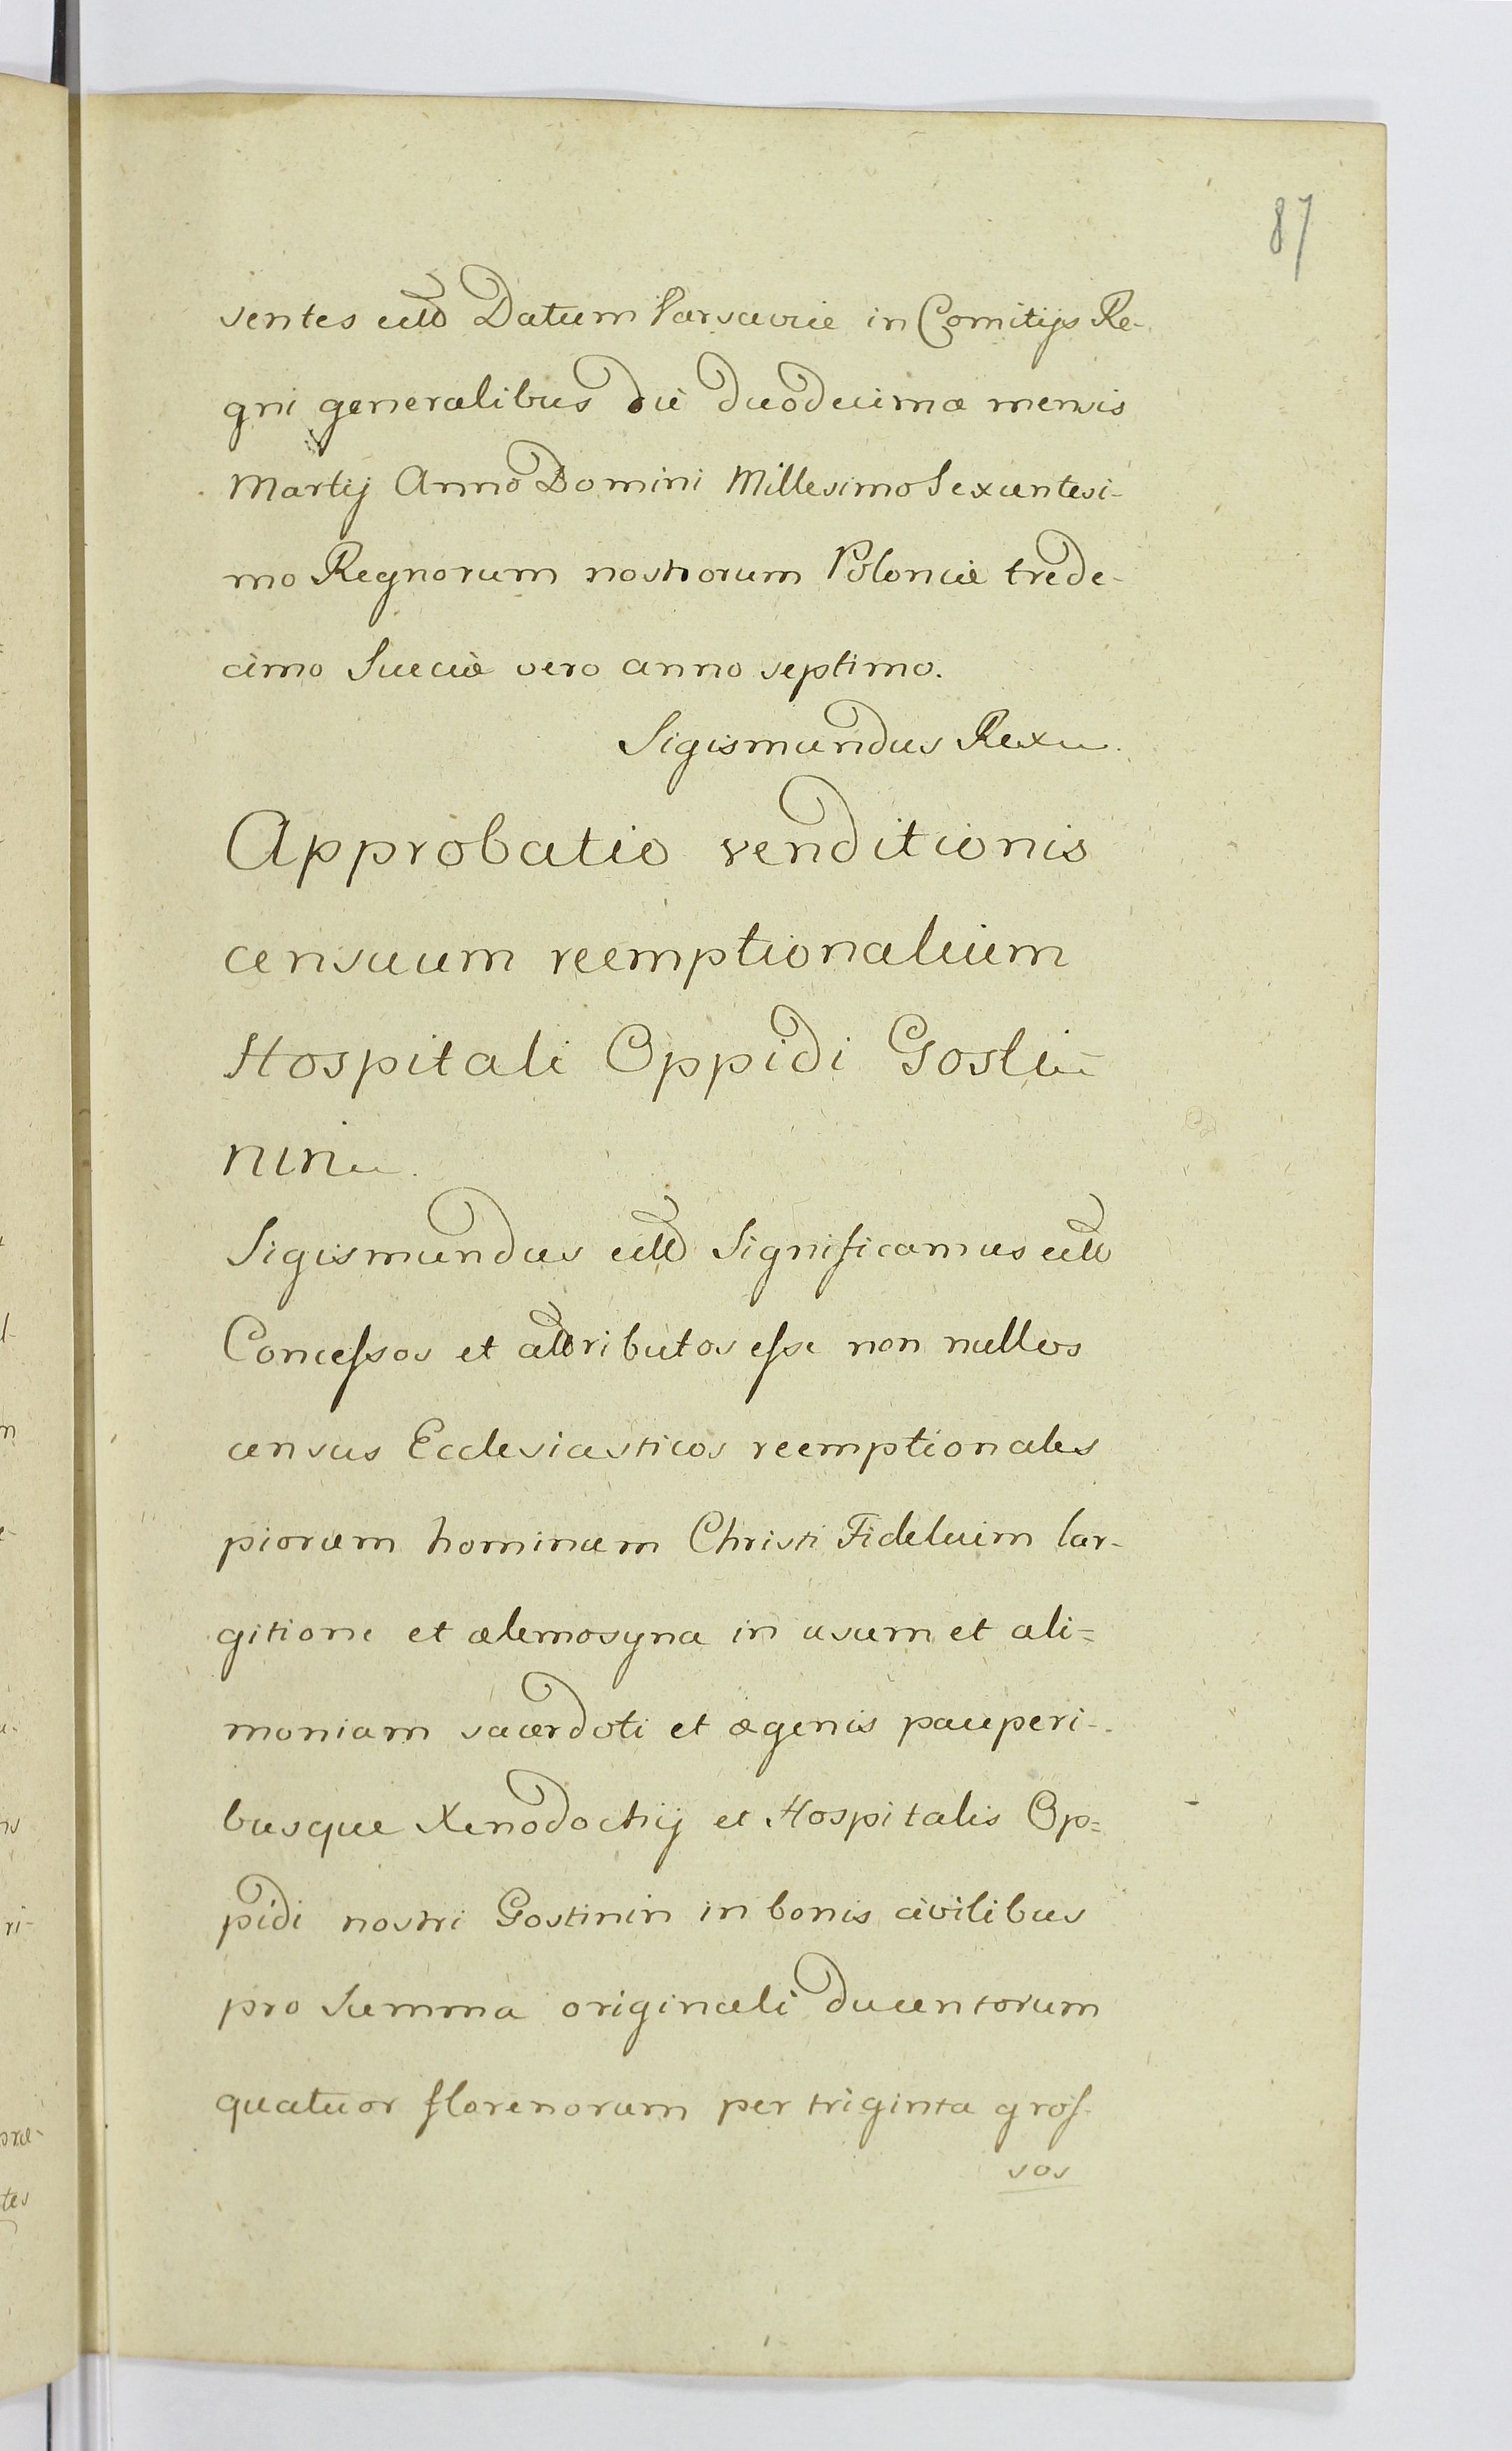 87
sentes etc Datum Varsaviæ in Comitijs Re-
gni generalibus die duodecima mensis
Martij Anno Domini Millesimo Sexcentesi-
mo Regnorum nostrorum Poloniæ trede-
cimo Sueciæ vero anno septimo.
Sigismundus Rex
Approbatio venditionis
censuum reemptionalium
Hospitali Oppidi Gosti-
nin
Sigismundus etc Significamus etc
Concessos et attributos esse non nullos
census Ecclesiasticos reemptionales
piorum hominum Christi Fidelium lar-
gitione et elemosyna in usum et ali=
moniam sacerdoti et egenis pauperi-
busque Xenodochij et Hospitalis Op=
pidi nostri Gostinin in bonis civilibus
pro Summa originali ducentorum
quatuor florenorum per triginta gros-
sos